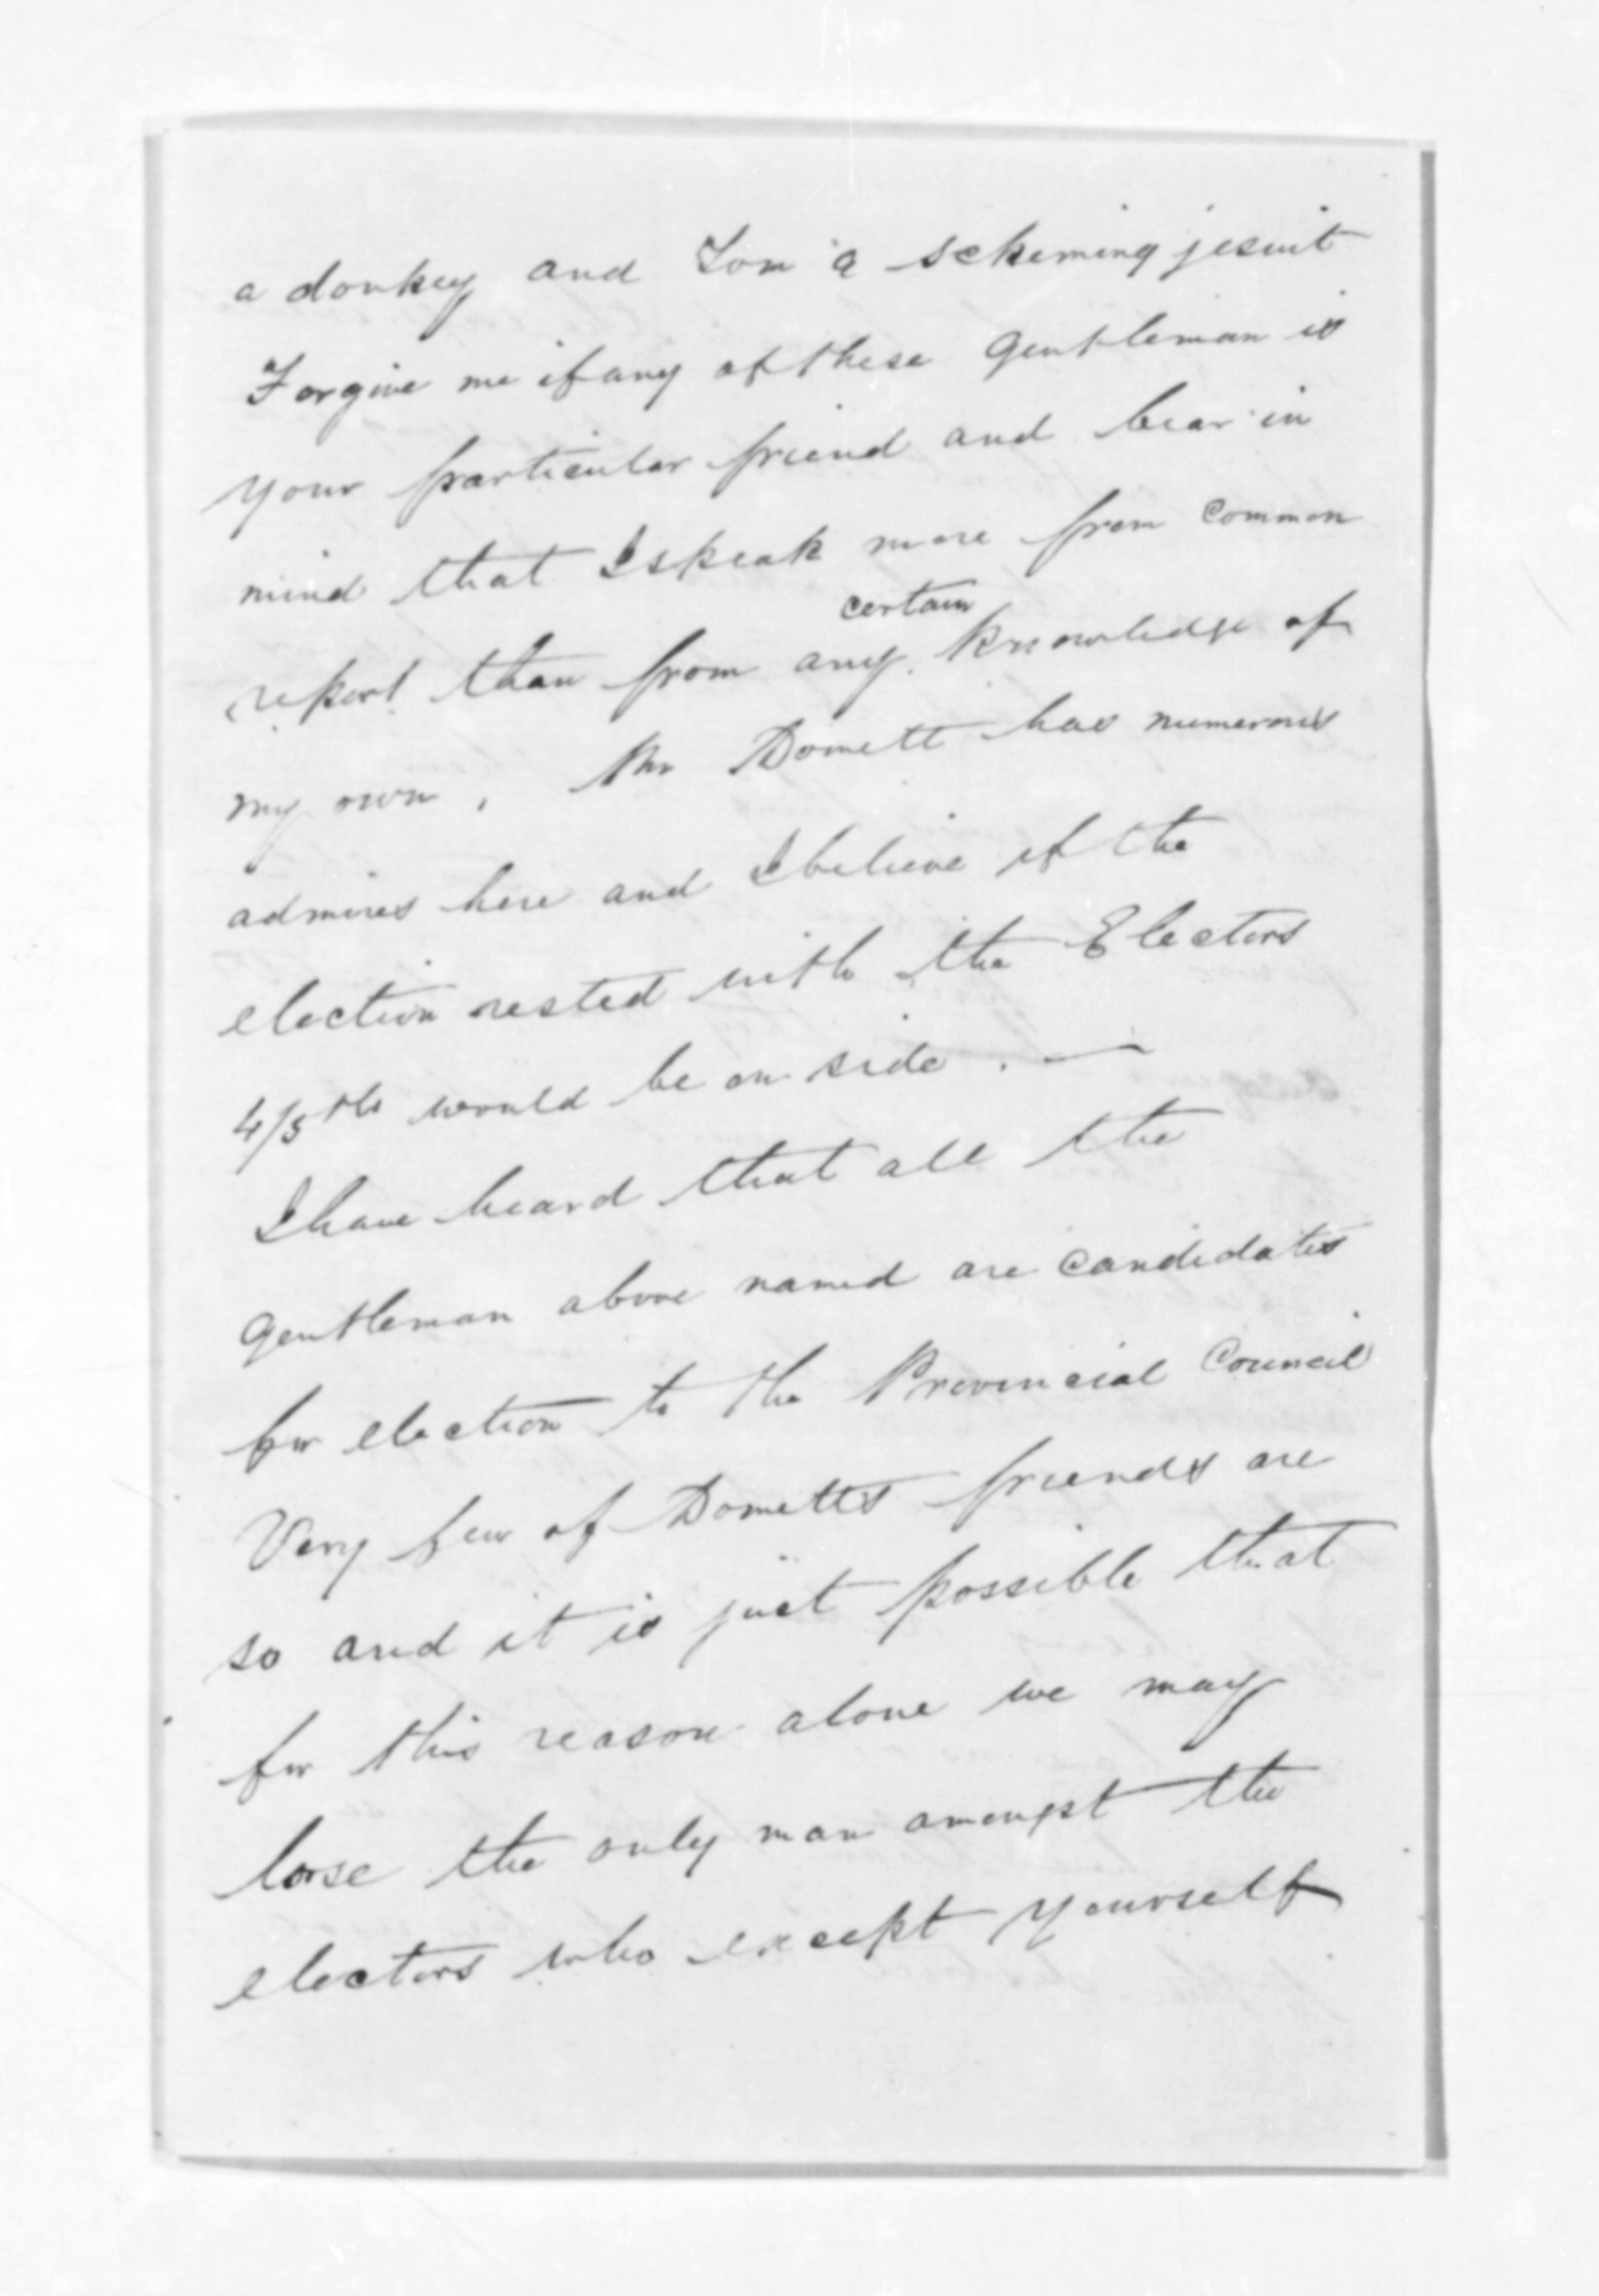 a donkey and Tom a scheming jesuit
Forgive me if any of these Gentleman is
your particular friend and bear in
mind that I speak more from common
certain
report than from any knowledge of
my own. Mr Domett has numerous
admires here and I believe if the
election rested with the Electors
4/5ths would be on side. —
I have heard that all the
Gentleman above named are candidates
for election to the Provincial Council
Very few of Dometts friends are
so and it is just possible that
for this reason alone we may
loose the only man amongst the
electors who except yourself